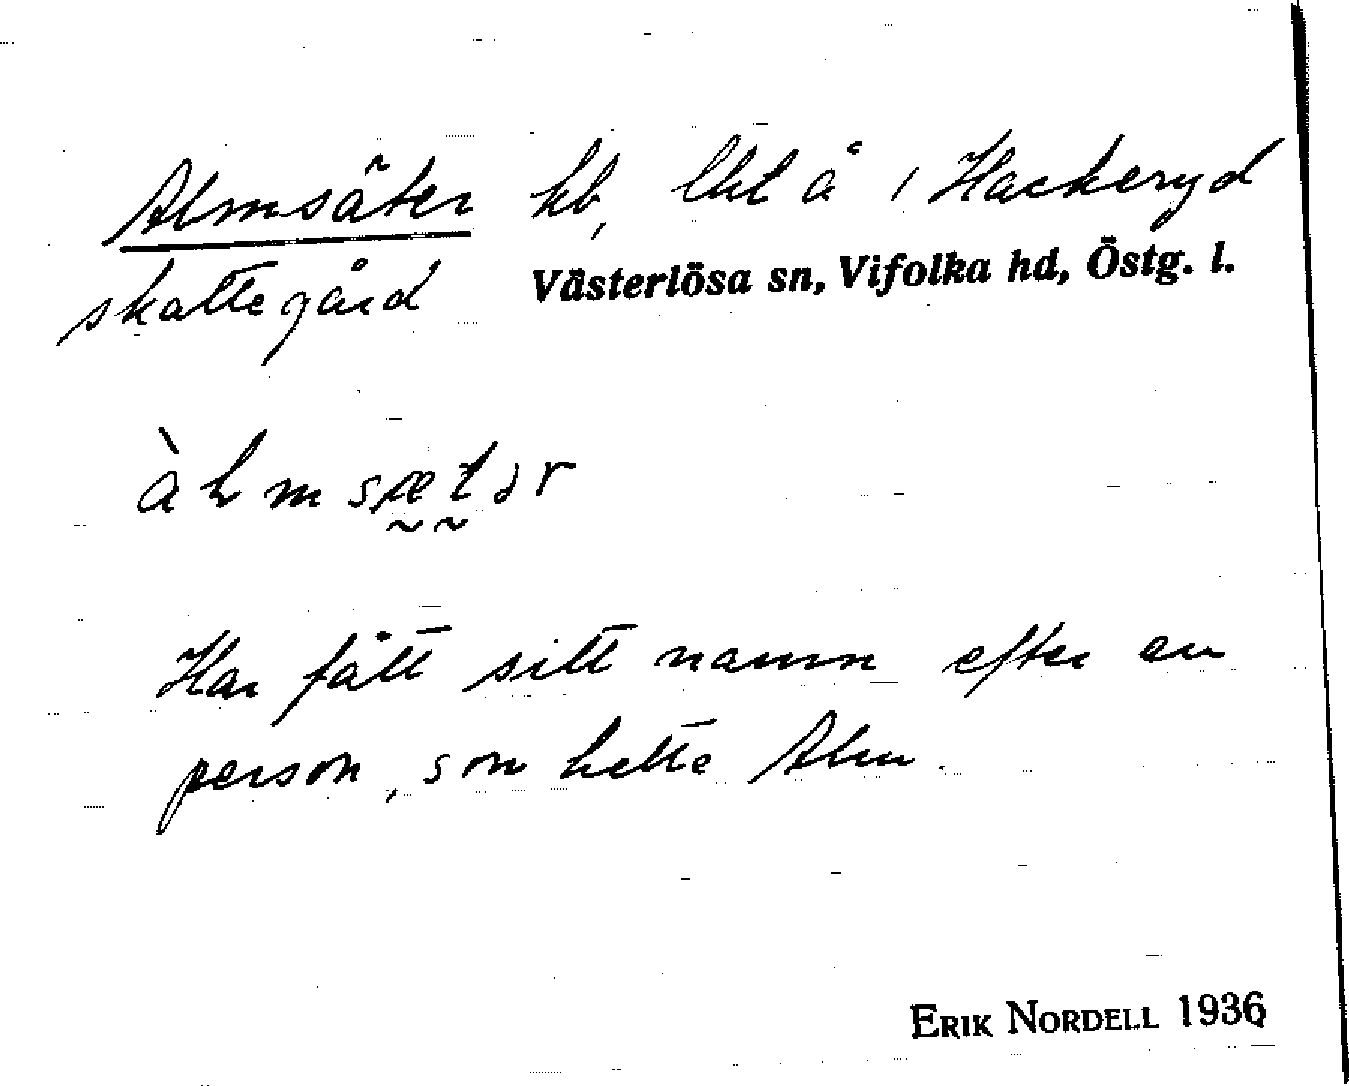 Almsäter kb, lht å 1 Hackeryd
skattegård Västerlösa sn, Vifolka hd, Östg. l.
àlmsætər
Har fått sitt namn efter en
person, som hette Alm.
ERIK NORDELL 1936